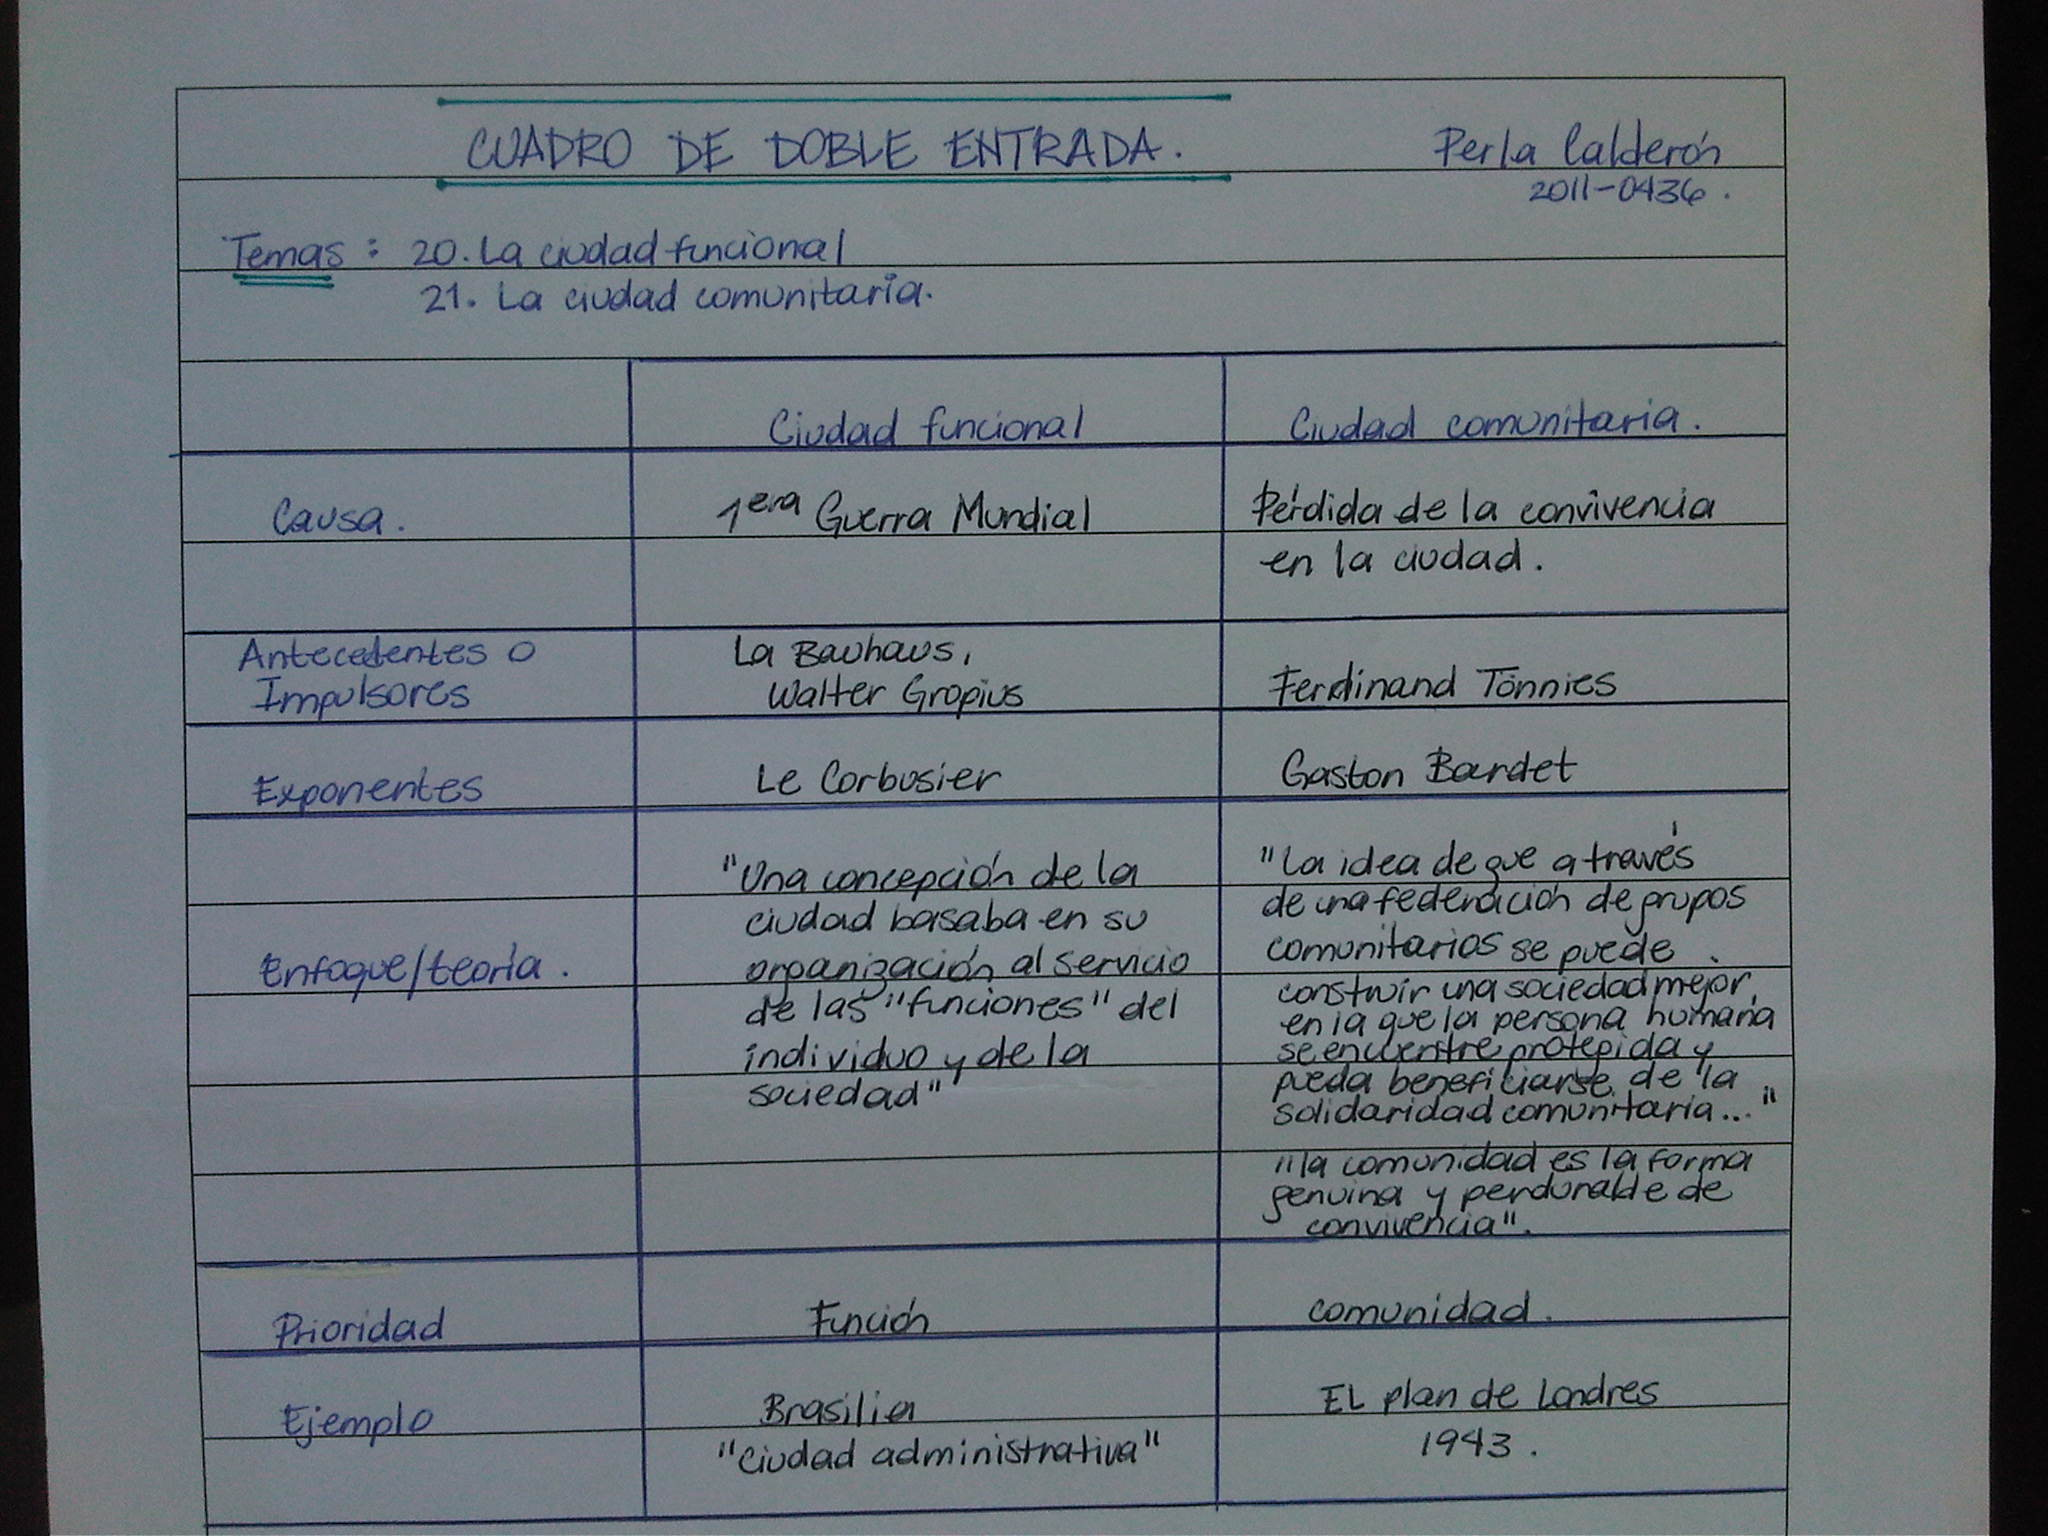 CUADRO DE DOBLE ENTRADA.
Perla Calderón
2011-0436.
Temas: 20. La ciudad funcional
21. La ciudad comunitaria.
Ciudad funcional
Ciudad comunitaria.
Causa.
1era Guerra Mundial
Pérdida de la convivencia
en la ciudad.
Antecedentes o
Impulsores
La Bauhaus,
Walter Gropius
Ferdinand Tönnies
Exponentes
Le Corbusier
Gaston Bardet
Enfoque/teoría.
"Una concepción de la
ciudad basaba en su
organización al servicio
de las "funciones" del
individuo y de la
sociedad"
"La idea de que a través
de una federación de grupos
comunitarios se puede
construir una sociedad mejor,
en la que la persona humana
se encuentre protegida y
pueda beneficiarse de la
solidaridad comunitaria..."
"la comunidad es la forma
genuina y perdurable de
convivencia".
Prioridad
Función
comunidad.
Ejemplo
Brasilia
"Ciudad administrativa"
EL plan de Londres
1943.